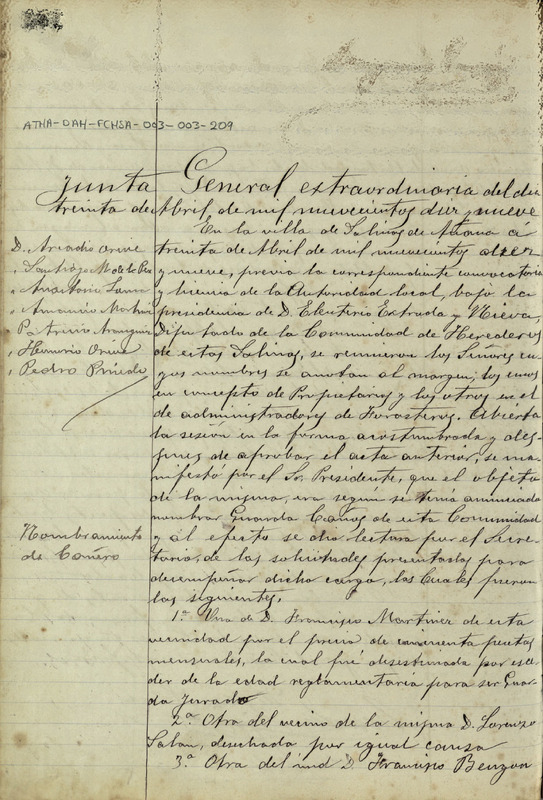 ATHA-DAH-FCHSA-003-003-209
Junta General extraordinaria del dia
treinta de Abril de mil nuevecientos diez y nueve
En la villa de Salinas de Añana a
D. Arcadio
" Santiago M. de la
" Anastasio
" Amancio
Patricio
" Honorio
" Pedro Pinedo
treinta de Abril de mil nuevecientos diez
y nueve, previa la correspondiente convocatoria
y licencia de la Autoridad local, bajo la
presidencia de D. Eleuterio Estrada y Nieva,
Diputado de la Comunidad de Herederos
de estas Salinas, se reunieron los Señores cu-
yos nombres se anotan al margen; los unos
en concepto de Propietarios y los otros en el
de administradores de Forasteros. Abierta
la sesión en la forma acostumbrada y des-
pues de aprobar el acta anterior, se ma-
nifestó por el Sr. Presidente, que el objeto
de la misma, era según se tenia anunciado
Nombramiento
de Cañero
nombrar Guarda Cañero de esta Comunidad
y al efecto se dio lectura por el Secre-
tario, de las solicitudes presentadas para
desempeñar dicho cargo, las cuales fueron
las siguientes.
1ª Una de D. Francisco Martinez de esta
vecindad por el precio de cincuenta pesetas
mensuales, la cual fué desestimada por exce-
der de la edad reglamentaria para ser Guar-
da Jurado
2ª Otra del vecino de la misma D. Lorenzo
desechada por igual causa
3ª Otra del D. Francisco